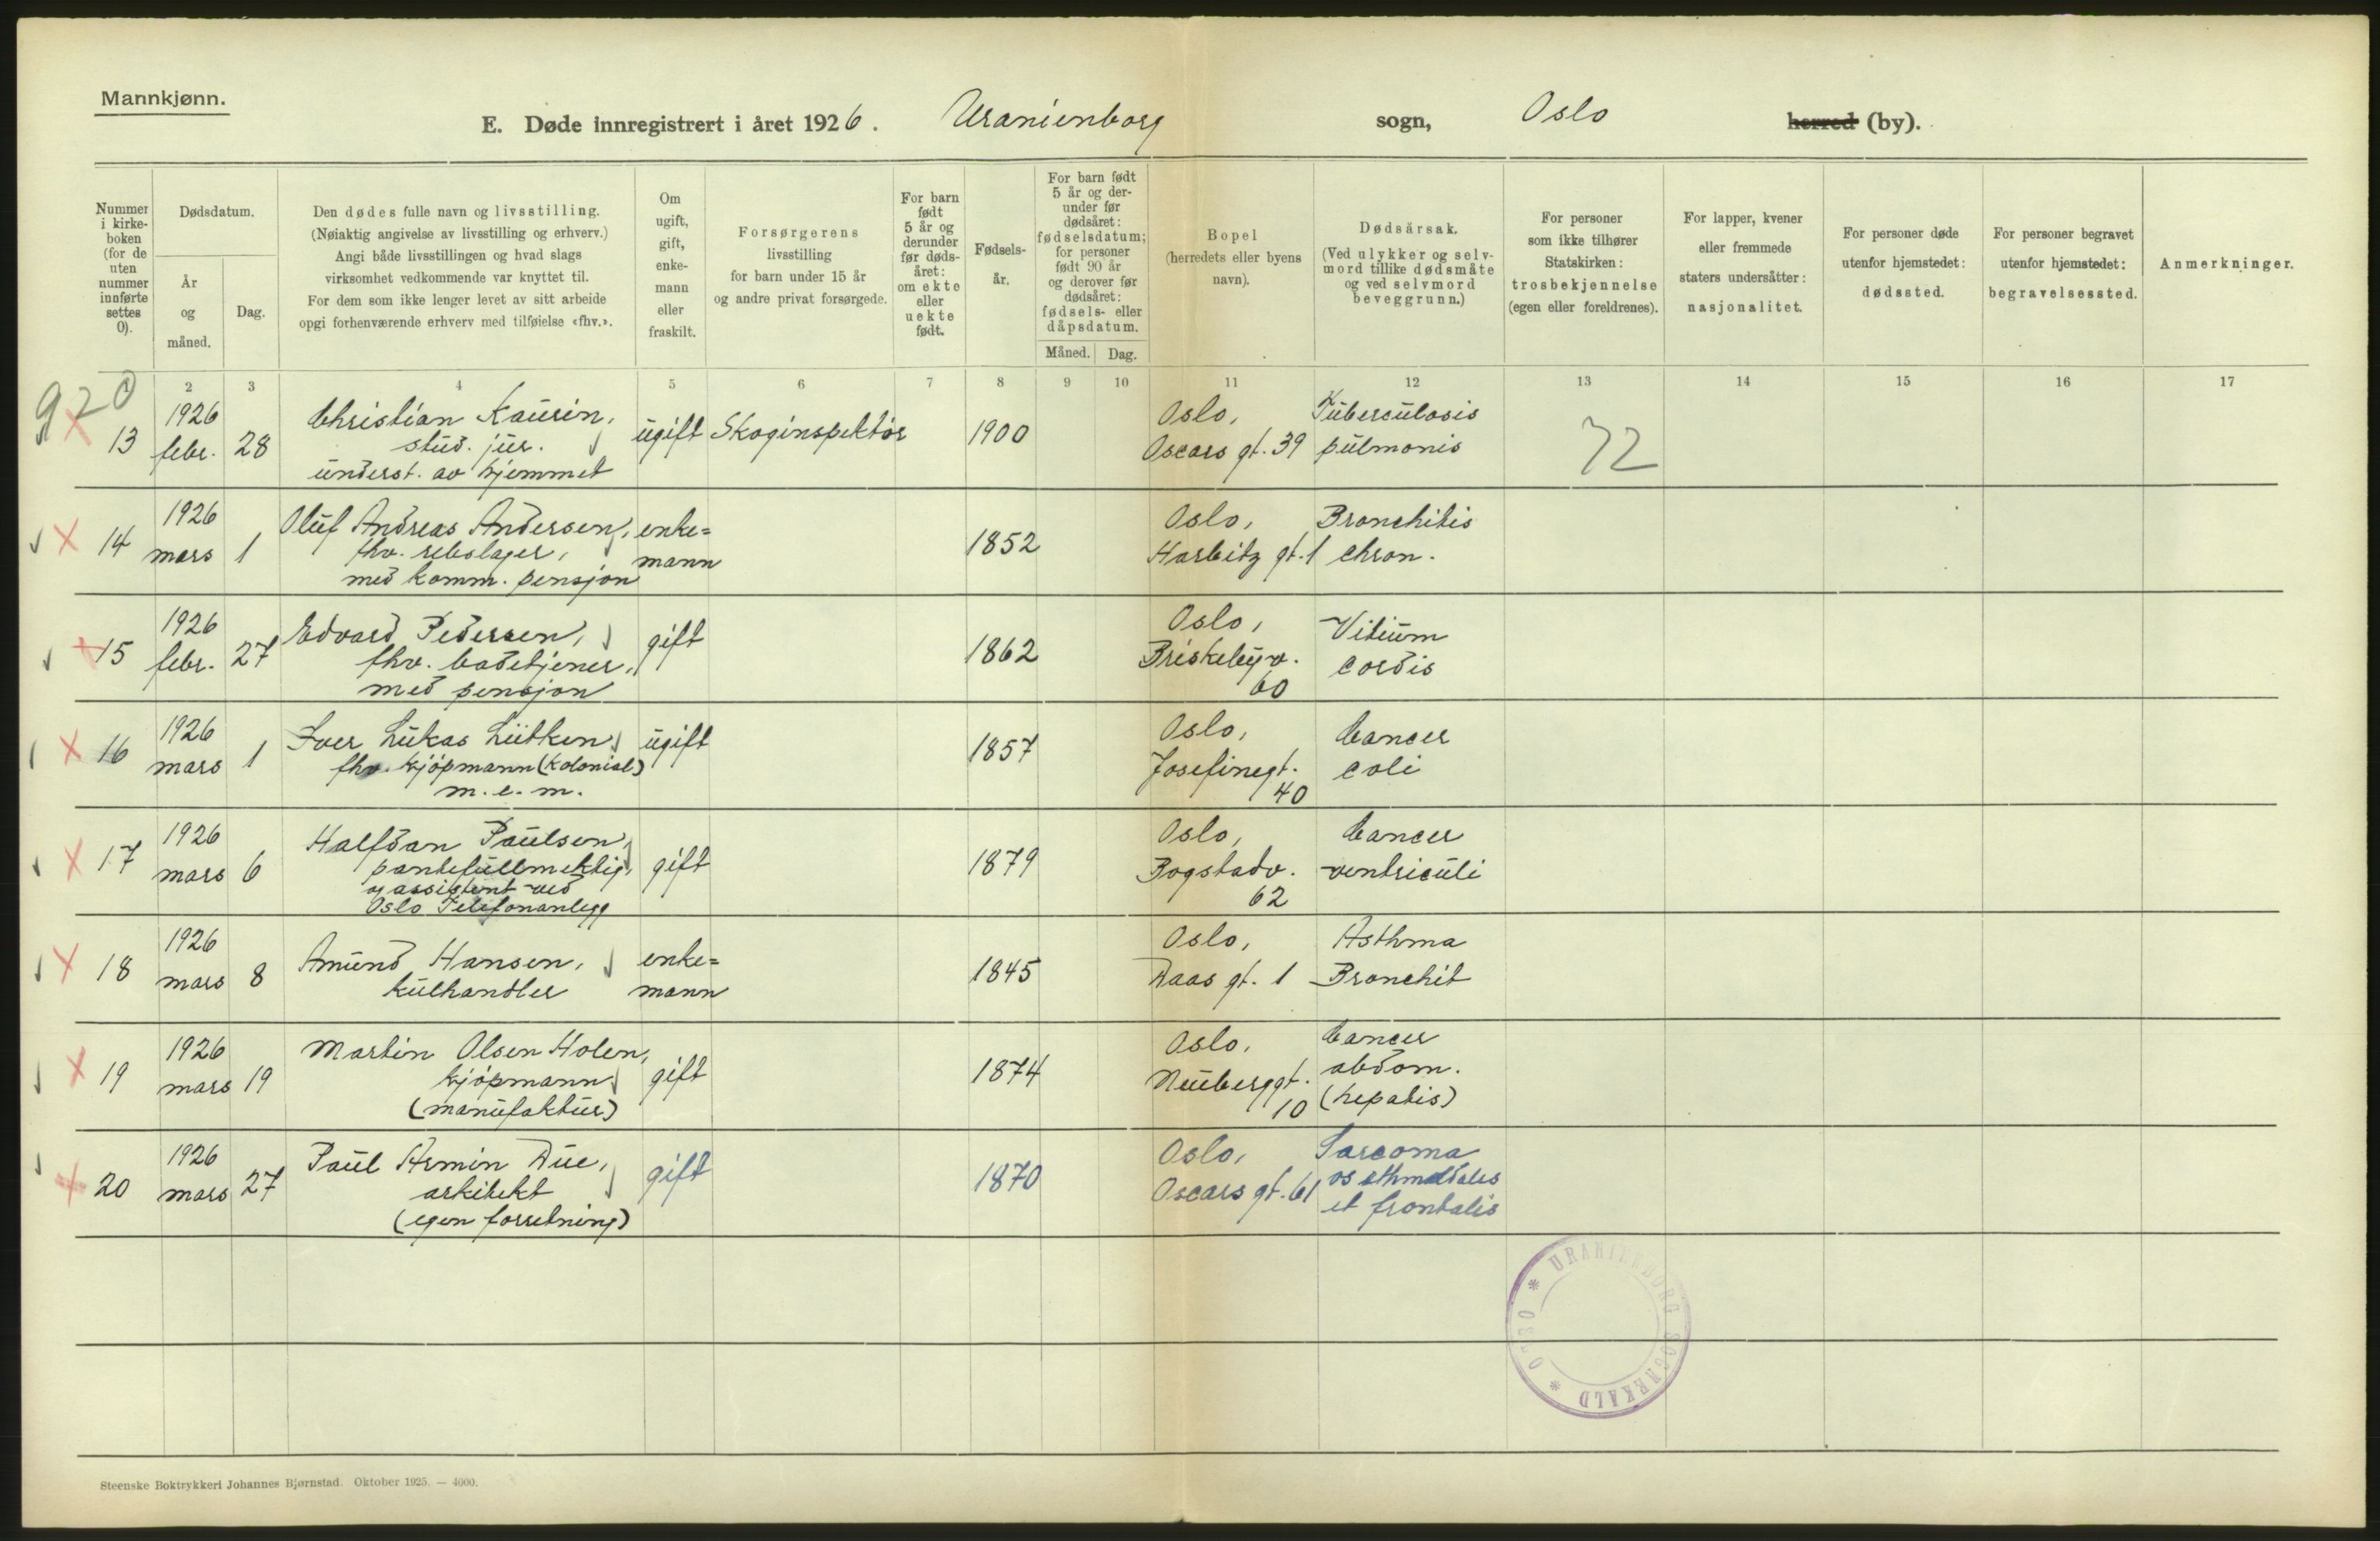 Mannkjønn.
E. Døde innregistrert i året 1926. Uranienborg sogn, Oslo herred (by).
Nummer i kirke-boken (for de uten nummer innførte settes 0).
Dødsdatum.
År og måned.
Dag.
Den dødes fulle navn og livsstilling.
(Nøiaktig angivelse av livsstilling og erhverv.)
Angi både livsstillingen og hvad slags
virksomhet vedkommende var knyttet til.
For dem som ikke lenger levet av sitt arbeide
opgi forhenværende erhverv med tilføielse «fhv.».
Om ugift, gift, enke-mann eller fraskilt.
Forsørgerens
livsstilling
for barn under 15 år
og andre privat forsørgede.
For barn født 5 år og derunder før døds-året: om ekte eller uekte født.
Fødsels-år.
For barn født 5 år og der-under før dødsåret: fødselsdatum; for personer født 90 år og derover før dødsåret: fødsels- eller dåpsdatum.
Måned. Dag.
Bopel
(herredets eller byens
navn).
Dødsårsak.
(Ved ulykker og selv-
mord tillike dødsmåte
og ved selvmord
beveggrunn.)
For personer
som ikke tilhører
Statskirken:
trosbekjennelse
(egen eller foreldrenes).
For lapper, kvener
eller fremmede
staters undersåtter:
nasjonalitet.
For personer døde
utenfor hjemstedet:
dødssted.
For personer begravet
utenfor hjemstedet:
begravelsessted.
Anmerkninger.
1 2 3 4 5 6 7 8 9 10 11 12 13 14 15 16 17
920
13 1926 febr. 28 Christian Kaurin, stud. jur. underst. av hjemmet ugift Skoginspektør 1900 Oslo, Oscars gt. 39 Tuberculosis pulmonis 72
14 1926 mars 1 Oluf Andreas Andersen, fhv. rebslager, med komm. pensjon enke=mann 1852 Oslo, Harbitz gt. 1 Bronchitis chron.
15 1926 febr. 27 Edvard Pedersen, fhv. badetjener, med pensjon gift 1862 Oslo, Briskebyv. 60 Vitium cordis
16 1926 mars 1 Iver Lukas Lütken fhv. kjøpmann (kolonial) m.e.m. ugift 1857 Oslo, Josefinegt. 40 Cancer coli
17 1926 mars 6 Halfdan Paulsen, pantefullmektig, og assistent ved Oslo Telefonanlegg gift 1879 Oslo, Bogstadv. 62 Cancer ventriculi
18 1926 mars 8 Amund Hansen, kulhandler enke=mann 1845 Oslo, Daas gt. 1 Asthma Bronchit
19 1926 mars 19 Martin Olsen Holen, kjøpmann (manufaktur) gift 1874 Oslo, Neuberggt. 10 Cancer abdom. (hepatis)
20 1926 mars 27 Paul Armin Due, arkitekt (egen forretning) gift 1870 Oslo, Oscars gt. 61 Sarcoma os ethmoidales et frontalis
* URANIENBORG SOGNEKALD * OSLO
Steenske Boktrykkeri Johannes Bjørnstad. Oktober 1925. — 4000.